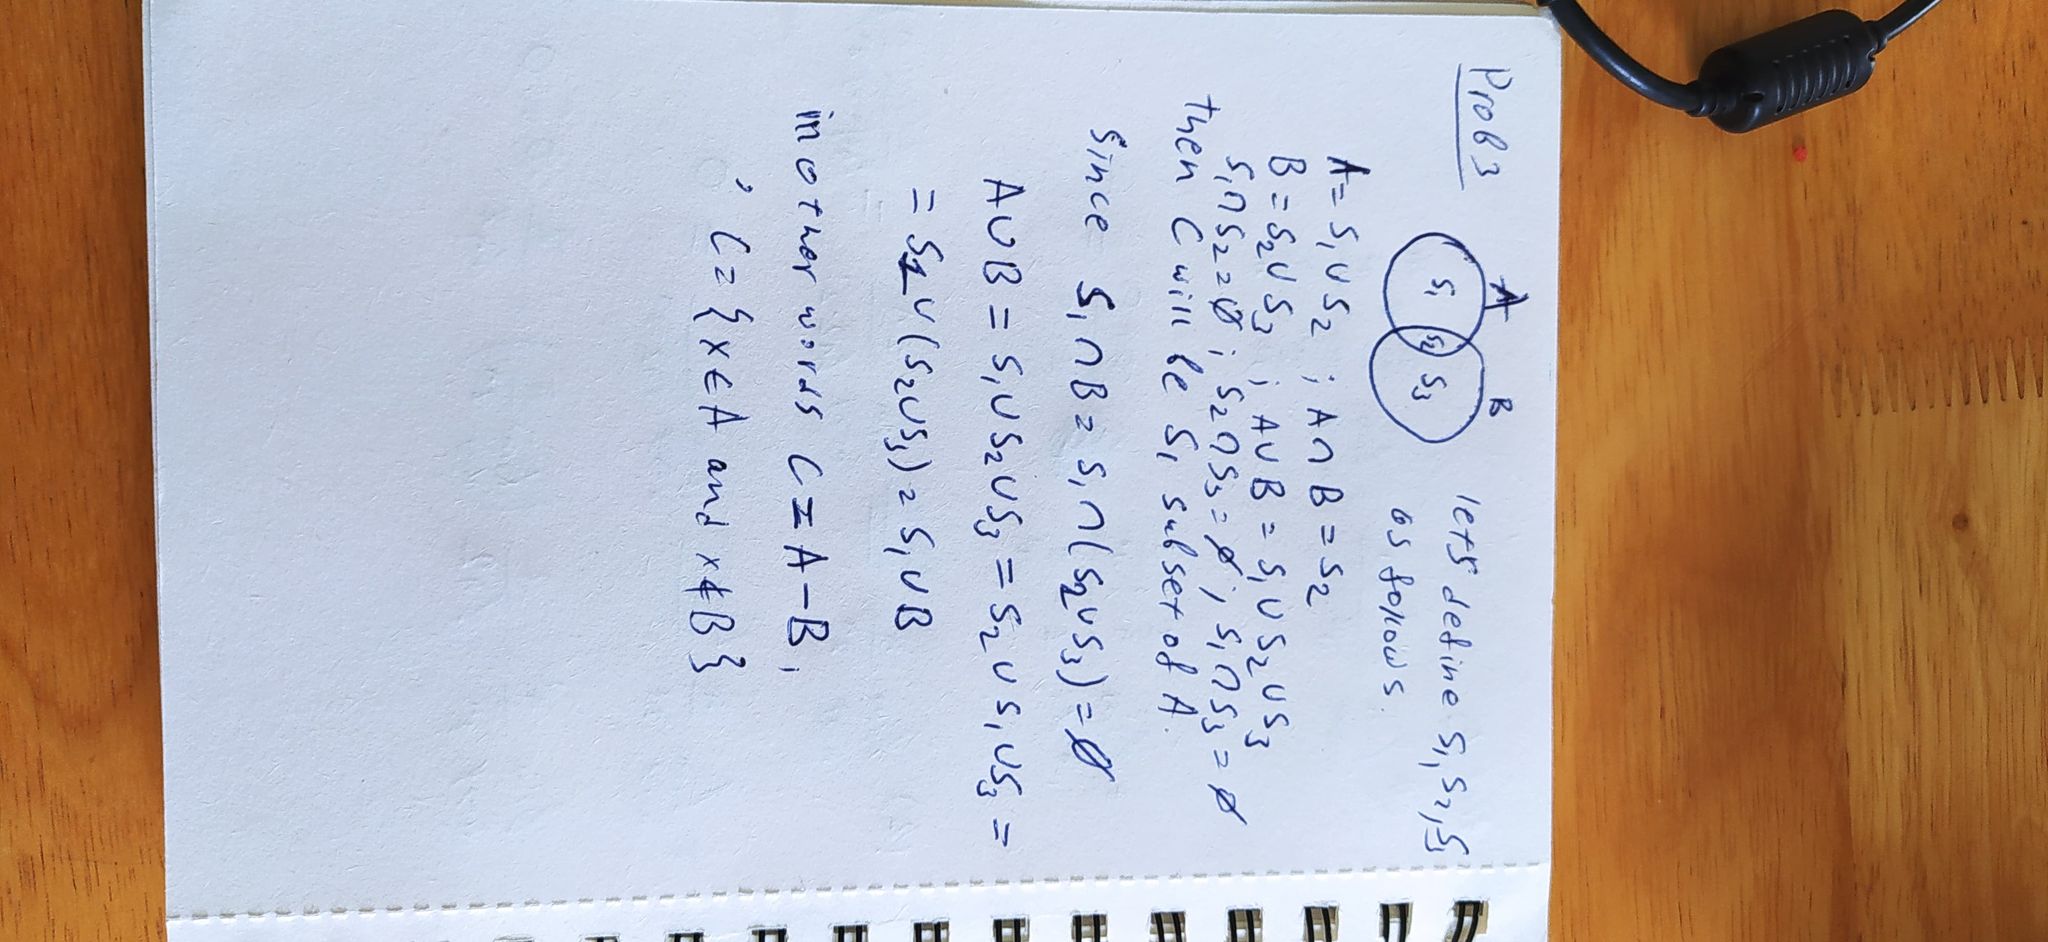 Prob 3
A B
S₁ S₂ S₃
let's define S₁, S₂, S₃
as follows.
A = S₁ ∪ S₂ ; A ∩ B = S₂
B = S₂ ∪ S₃ ; A ∪ B = S₁ ∪ S₂ ∪ S₃
S₁ ∩ S₂ = ∅ ; S₂ ∩ S₃ = ∅ ; S₁ ∩ S₃ = ∅
then C will be S₁ subset of A.
Since S₁ ∩ B = S₁ ∩ (S₂ ∪ S₃) = ∅
A ∪ B = S₁ ∪ S₂ ∪ S₃ = S₂ ∪ S₁ ∪ S₃ =
= S₁ ∪ (S₂ ∪ S₃) = S₁ ∪ B
in other words C = A − B,
, C = {x ∈ A and x ∉ B}